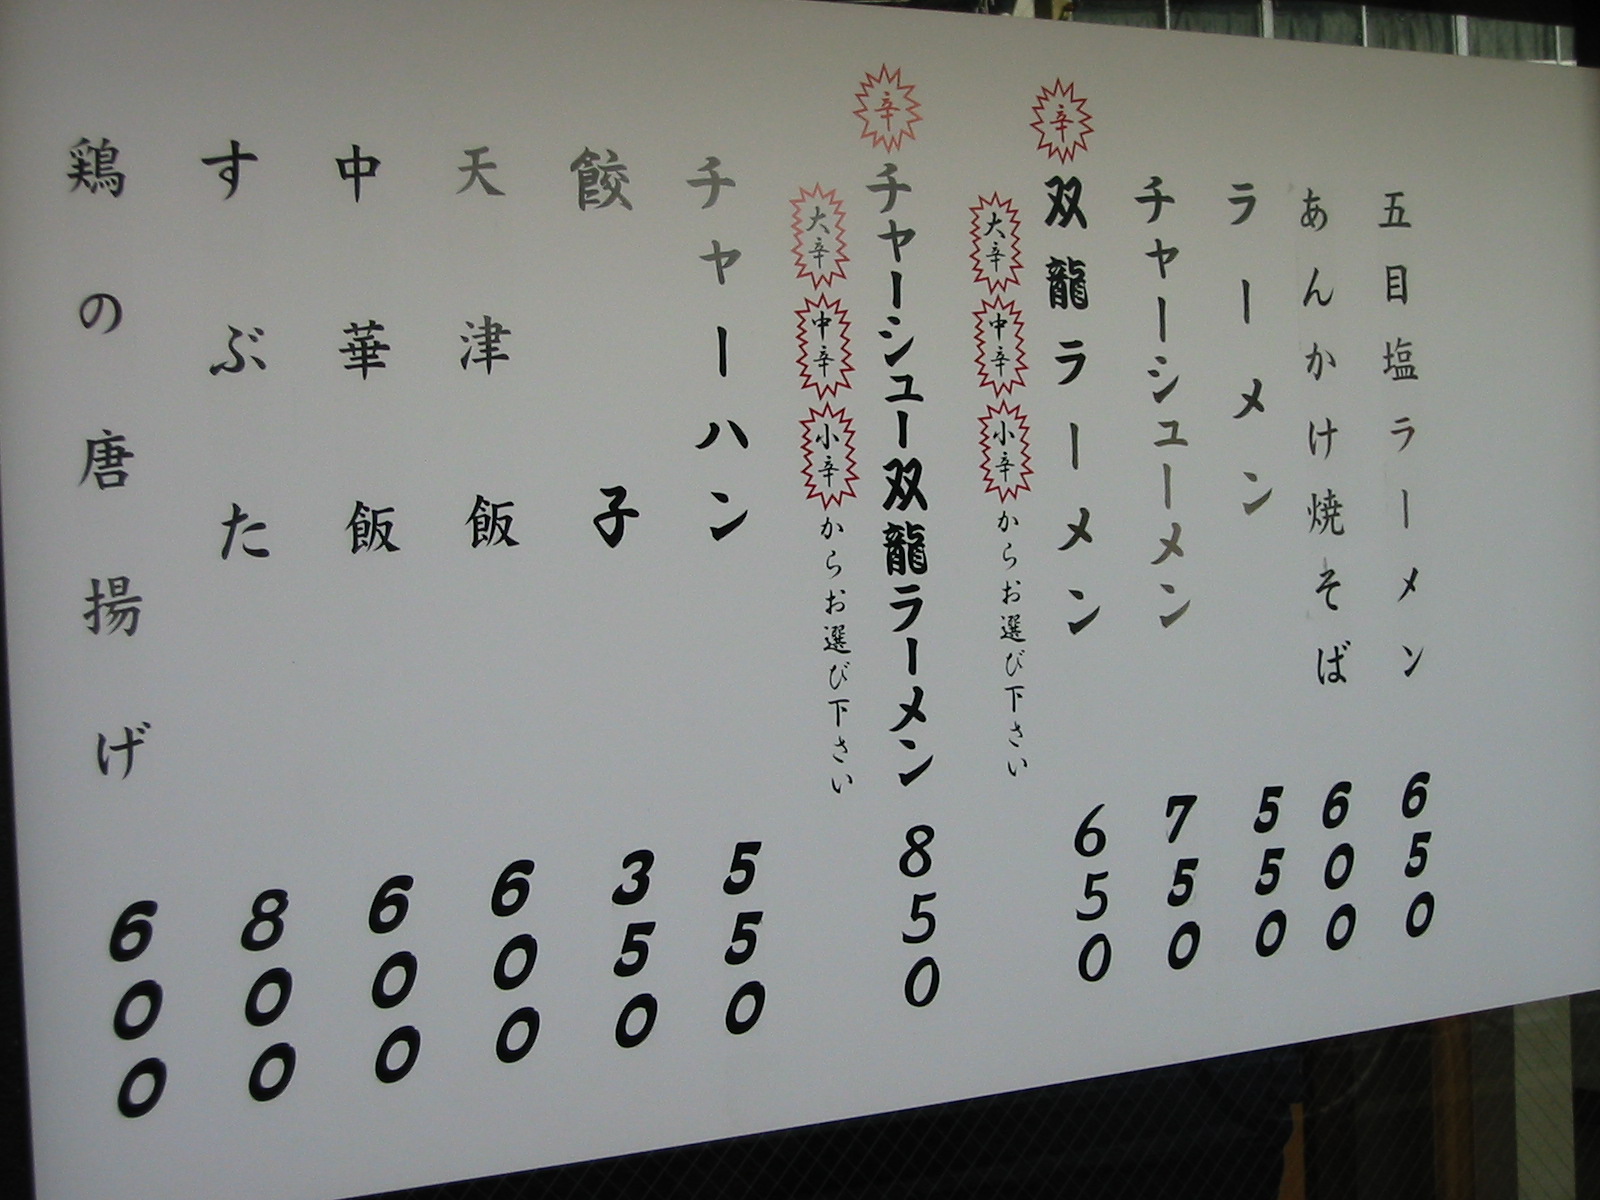 五目塩ラーメン 650
あんかけ焼そば 600
ラーメン 550
チャーシューメン 750
辛 双龍ラーメン 650
大辛 中辛 小辛 からお選び下さい
辛 チャーシュー双龍ラーメン 850
大辛 中辛 小辛 からお選び下さい
チャーハン 550
餃子 350
天津飯 600
中華飯 600
すぶた 800
鶏の唐揚げ 600